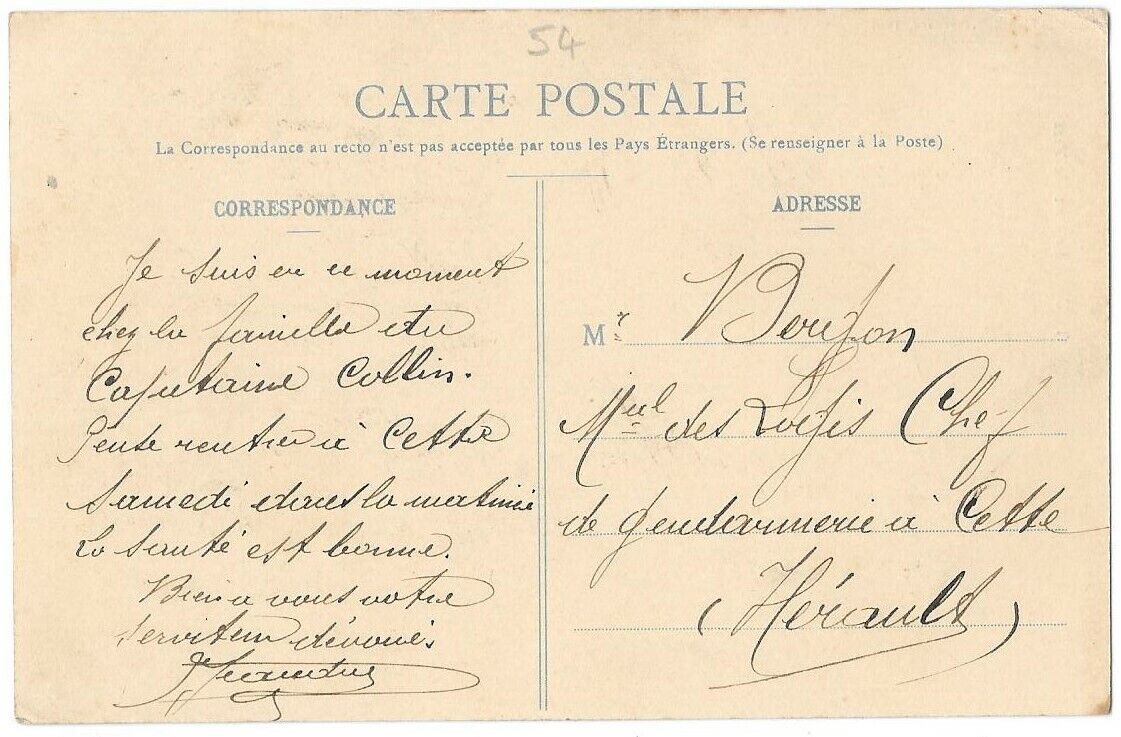 54
CARTE POSTALE
La Correspondance au recto n'est pas acceptée par tous les Pays Étrangers. (Se renseigner à la Poste)
CORRESPONDANCE
Je suis en ce moment
chez la famille du
Capitaine Collin.
Pense rentrer à Cette
Samedi dans la matinée
La Santé est bonne.
Bien à vous votre
serviteur dévoué
ADRESSE
Mr
Mal des Logis Chef
de gendarmerie à Cette
(Hérault)